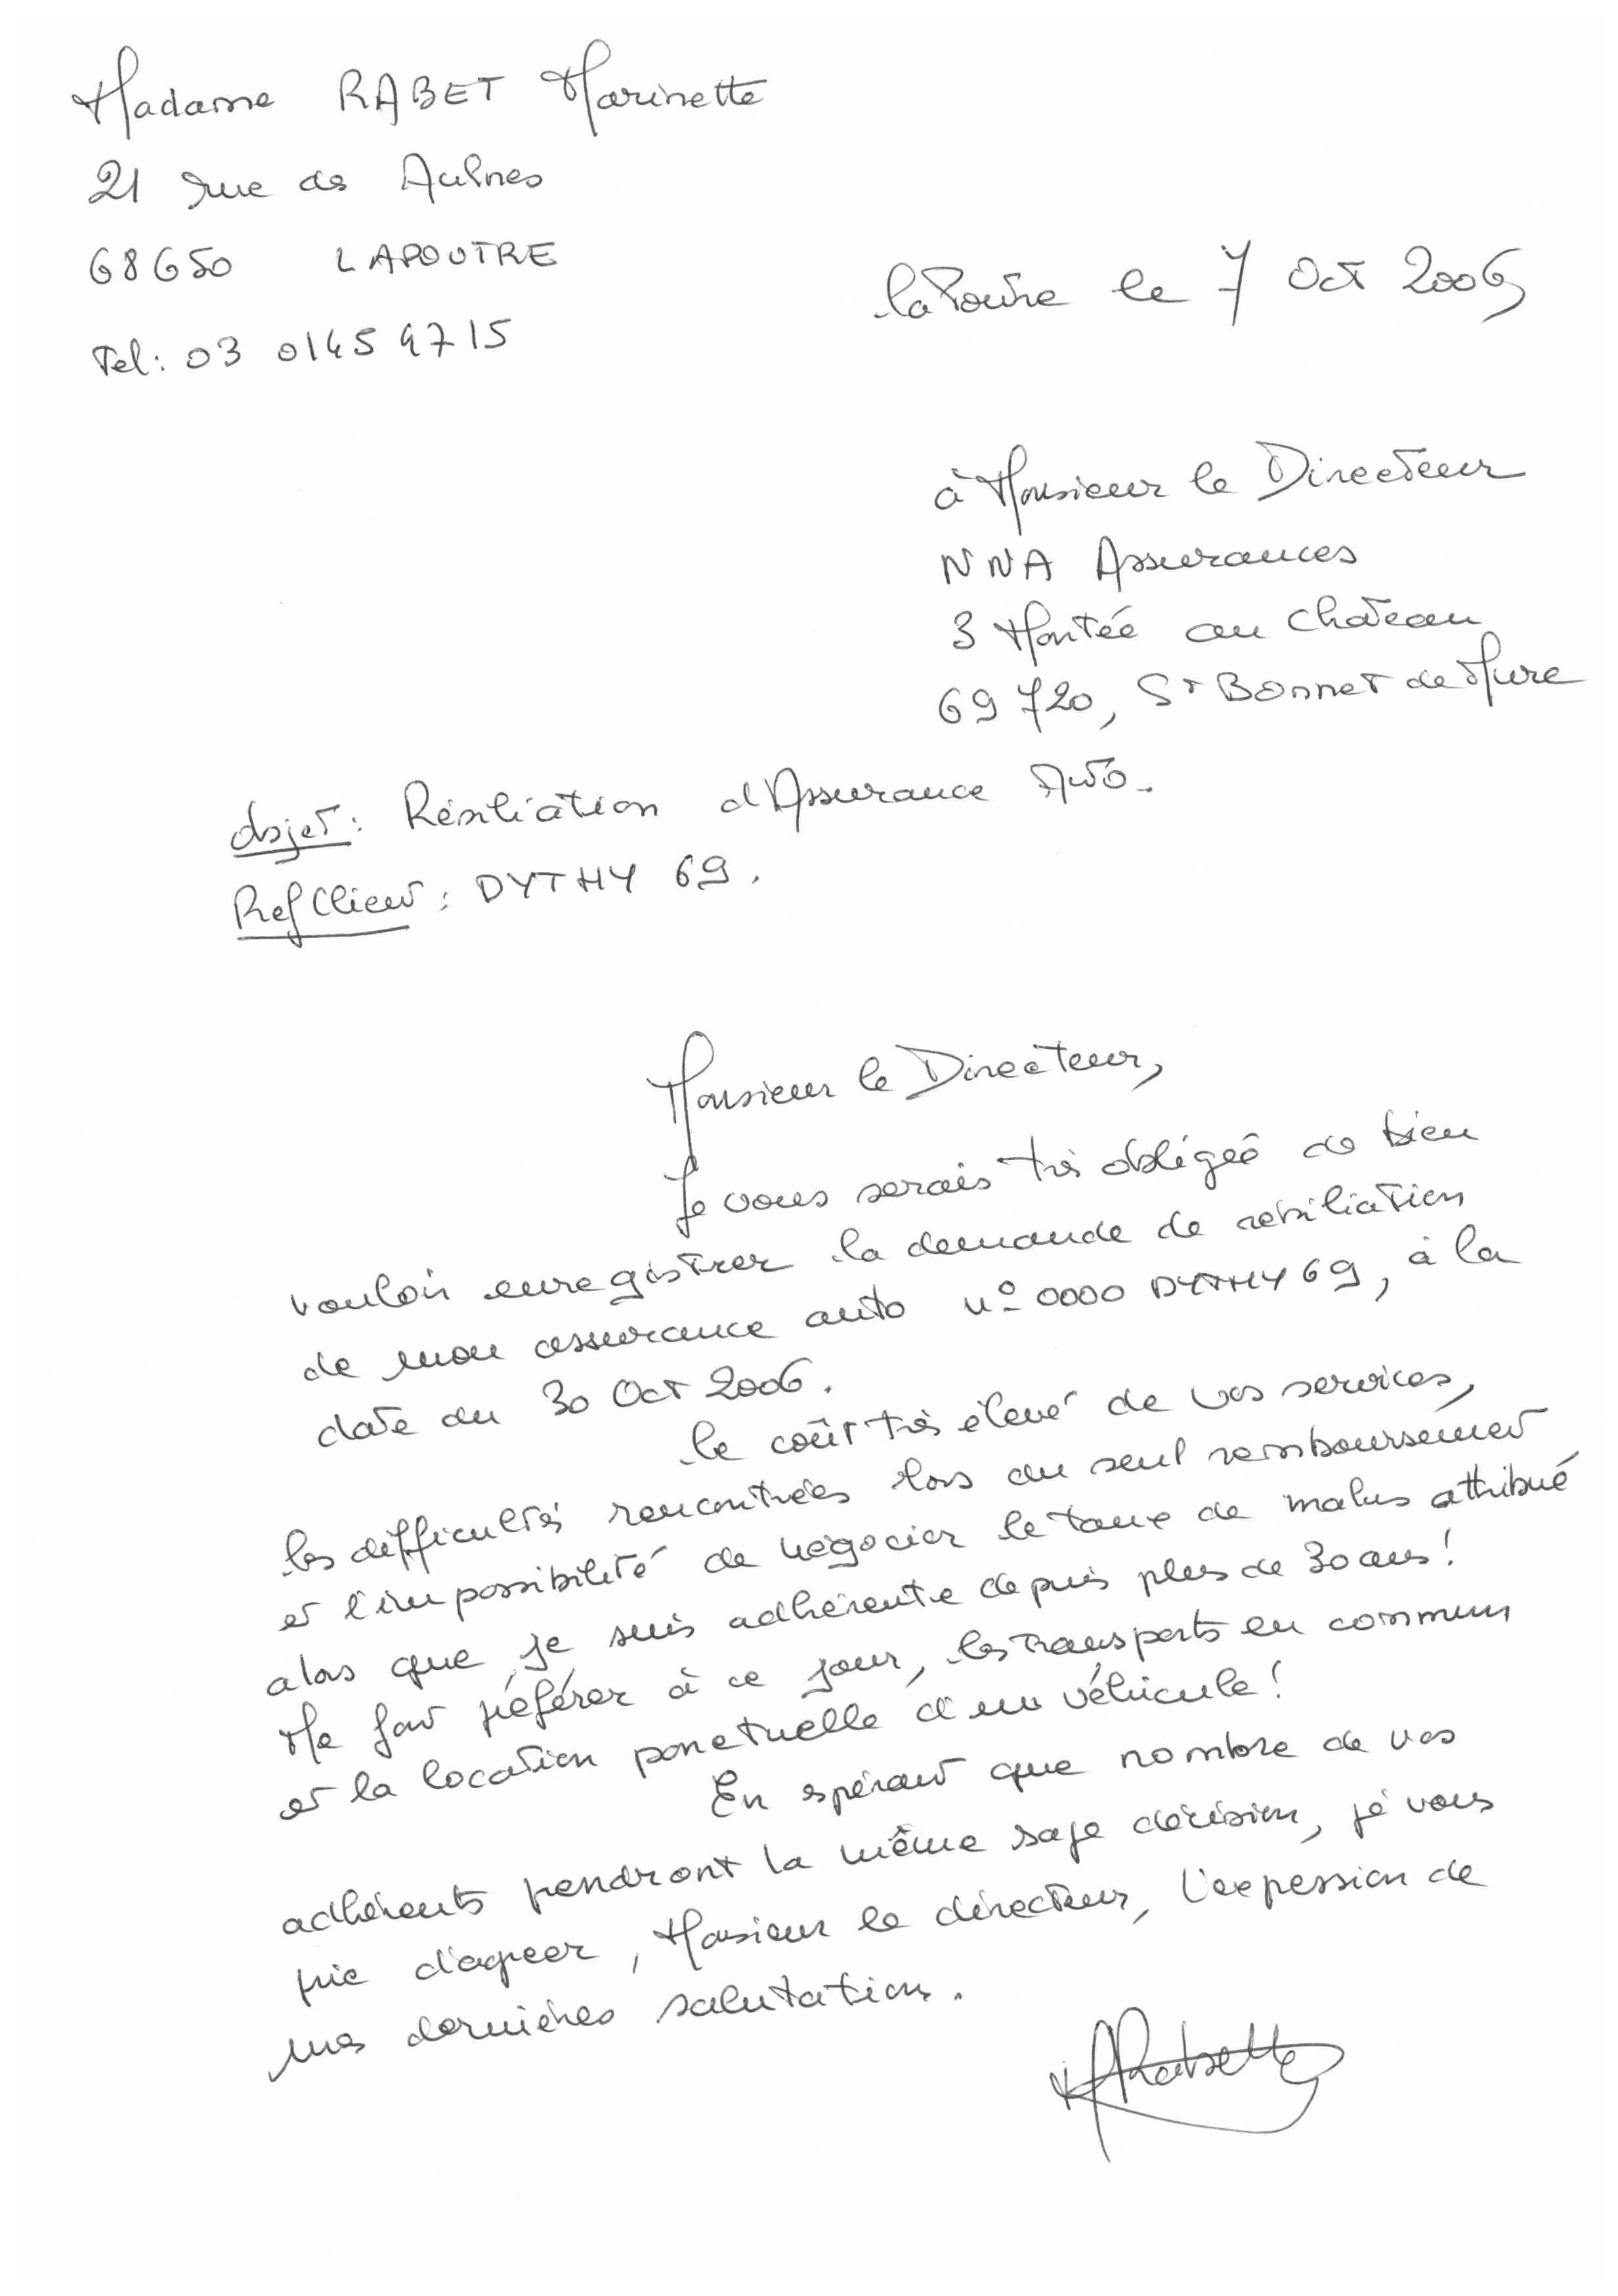 Madame RABET Marinette
21 rue des Aulnes
68650 LAPOUTRE
Tel: 03 0145 4715
le 7 Oct 2006
à Monsieur le Directeur
NNA Assurances
3 Montée du Chateau
69720, St Bonnet de Mure
Objet: Résiliation d'Assurance Auto.
Ref Client: DYTHY 69.
Monsieur le Directeur,
Je vous serais très obligée de bien
vouloir enregistrer la demande de résiliation
de mon assurance auto n° 0000 DYTHY 69, à la
date du 30 Oct 2006.
Le coût très élevé de vos services,
les difficultés rencontrées lors du seul remboursement
et l'impossibilité de négocier le taux de malus attribué
alors que je suis adhérente depuis plus de 30 ans!
Me fait préférer à ce jour, les transports en commun
et la location ponctuelle d'un véhicule!
En espérant que nombre de vos
adhérents prendront la même sage décision, je vous
prie d'agréer, Monsieur le directeur, l'expression de
mes dernières salutations.